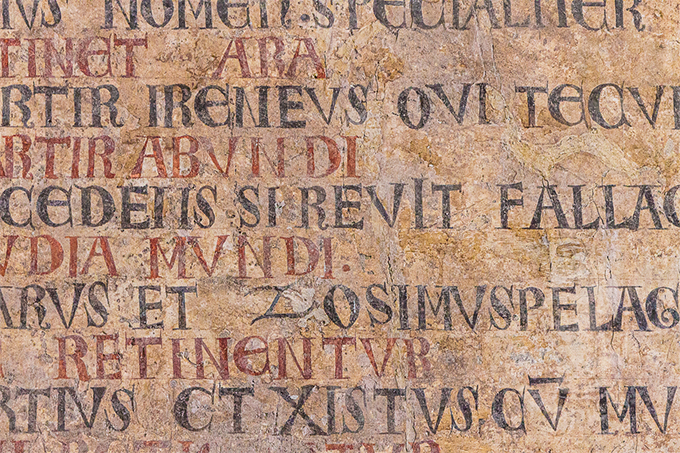 IVS NOMEN. SPECIALITER
TINET ARA
RTIR IRENEVS QVI TECVM
ARTIR ABVNDI
CEDENS SPREVIT FALLAC
VDIA MVNDI.
ARVS ET ZOSIMVS PELAG
RETINENTVR
RTIVS CT XISTVS, CV̄ MV